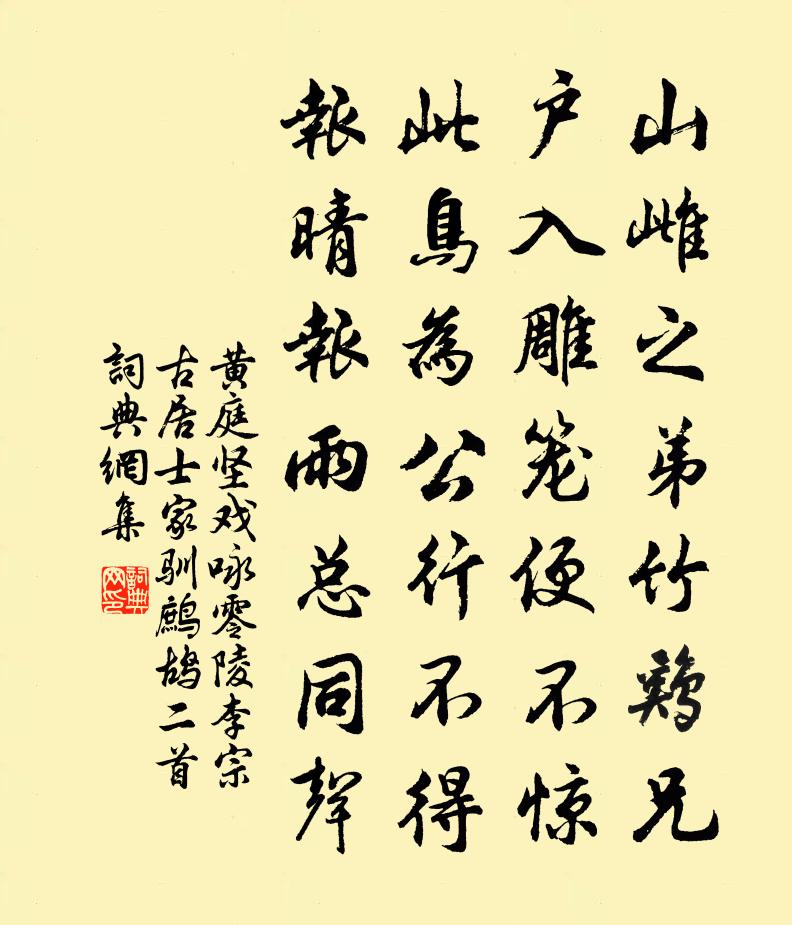 山雌之弟竹鷄兄
户入雕笼便不惊
此鳥為公行不得
報晴報雨总同聲
黄庭坚戏咏零陵李宗
古居士家驯鹧鸪二首
詞典網集
詞典网印